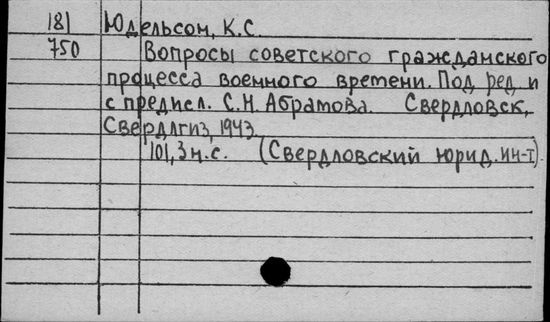 181 Юдельсон, К.С.
750 Вопросы советского гражданского
процесса военного времени. Под ред и
с предисл. С.Н. Абрамова. Свердловск,
Свердлгиз, 1943.
101, 3 н.с. (Свердловский юрид. ин-т).